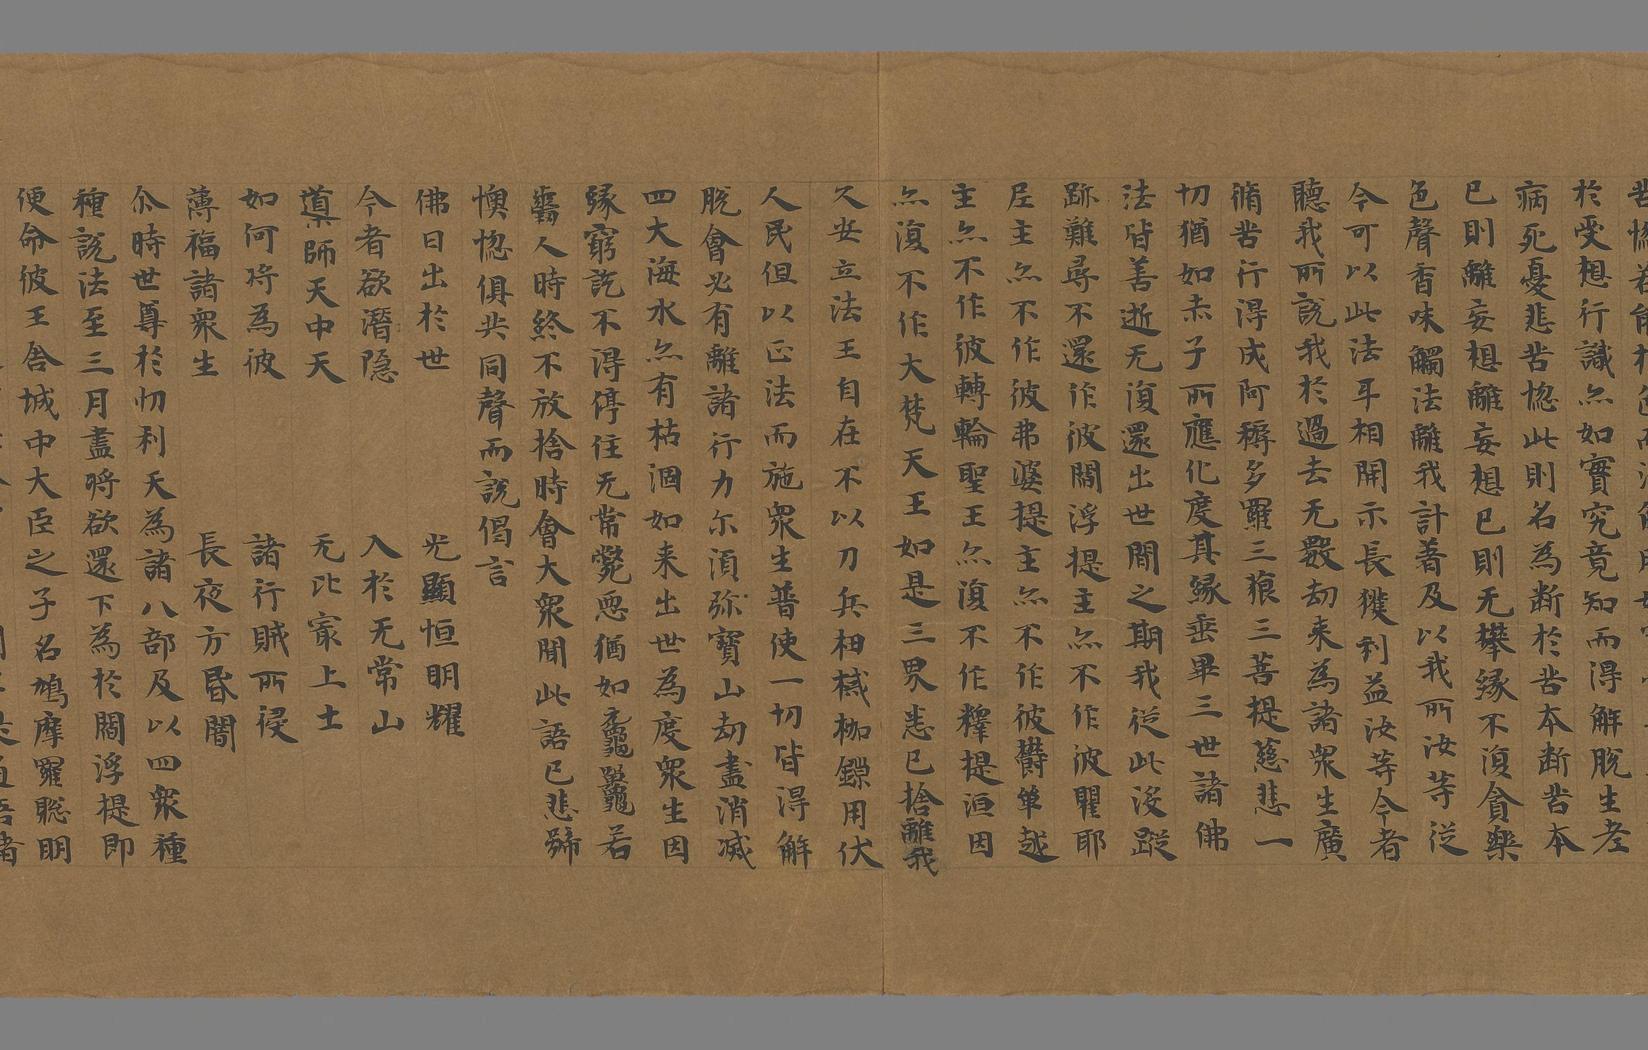 於受想行識亦如實究竟知而得解脫生老
病死憂悲苦惱此則名為斷於苦本斷苦本
已則離妄想離妄想已則无攀緣不復貪樂
色聲香味觸法離我計著及以我所汝等従
今可以此法耳相開示長獲利益汝等今者
聽我所說我於過去无數劫来為諸衆生廣
脩苦行得成阿耨多羅三藐三菩提慈悲一
切猶如赤子所應化度其緣垂畢三世諸佛
法皆善逝无復還出世間之期我従此後蹤
跡難尋不還作彼閻浮提主亦不作彼瞿耶
尼主亦不作彼弗婆提主亦不作彼欝單越
主亦不作彼轉輪聖王亦復不作釋提洹因
亦復不作大梵天王如是三界悉已捨離我
久安立法王自在不以刀兵杻械枷鏁用伏
人民但以正法而施衆生普使一切皆得解
脫會必有離諸行力尒湏弥寶山劫盡消滅
四大海水亦有枯涸如来出世為度衆生因
緣窮訖不得停住无常獘惡猶如黿龜若
齧人時終不放捨時會大衆聞此語已悲號
懊惱俱共同聲而說偈言
佛日出於世 光顯恒明耀
今者欲潛隱 入於无常山
導師天中天 无比冣上士
如何將為彼 諸行賊所侵
薄福諸衆生 長夜方昬闇
尒時世尊於忉利天為諸八部及以四衆種
種說法至三月盡將欲還下為於閻浮提即
便命彼王舎城中大臣之子名鳩摩羅聡明